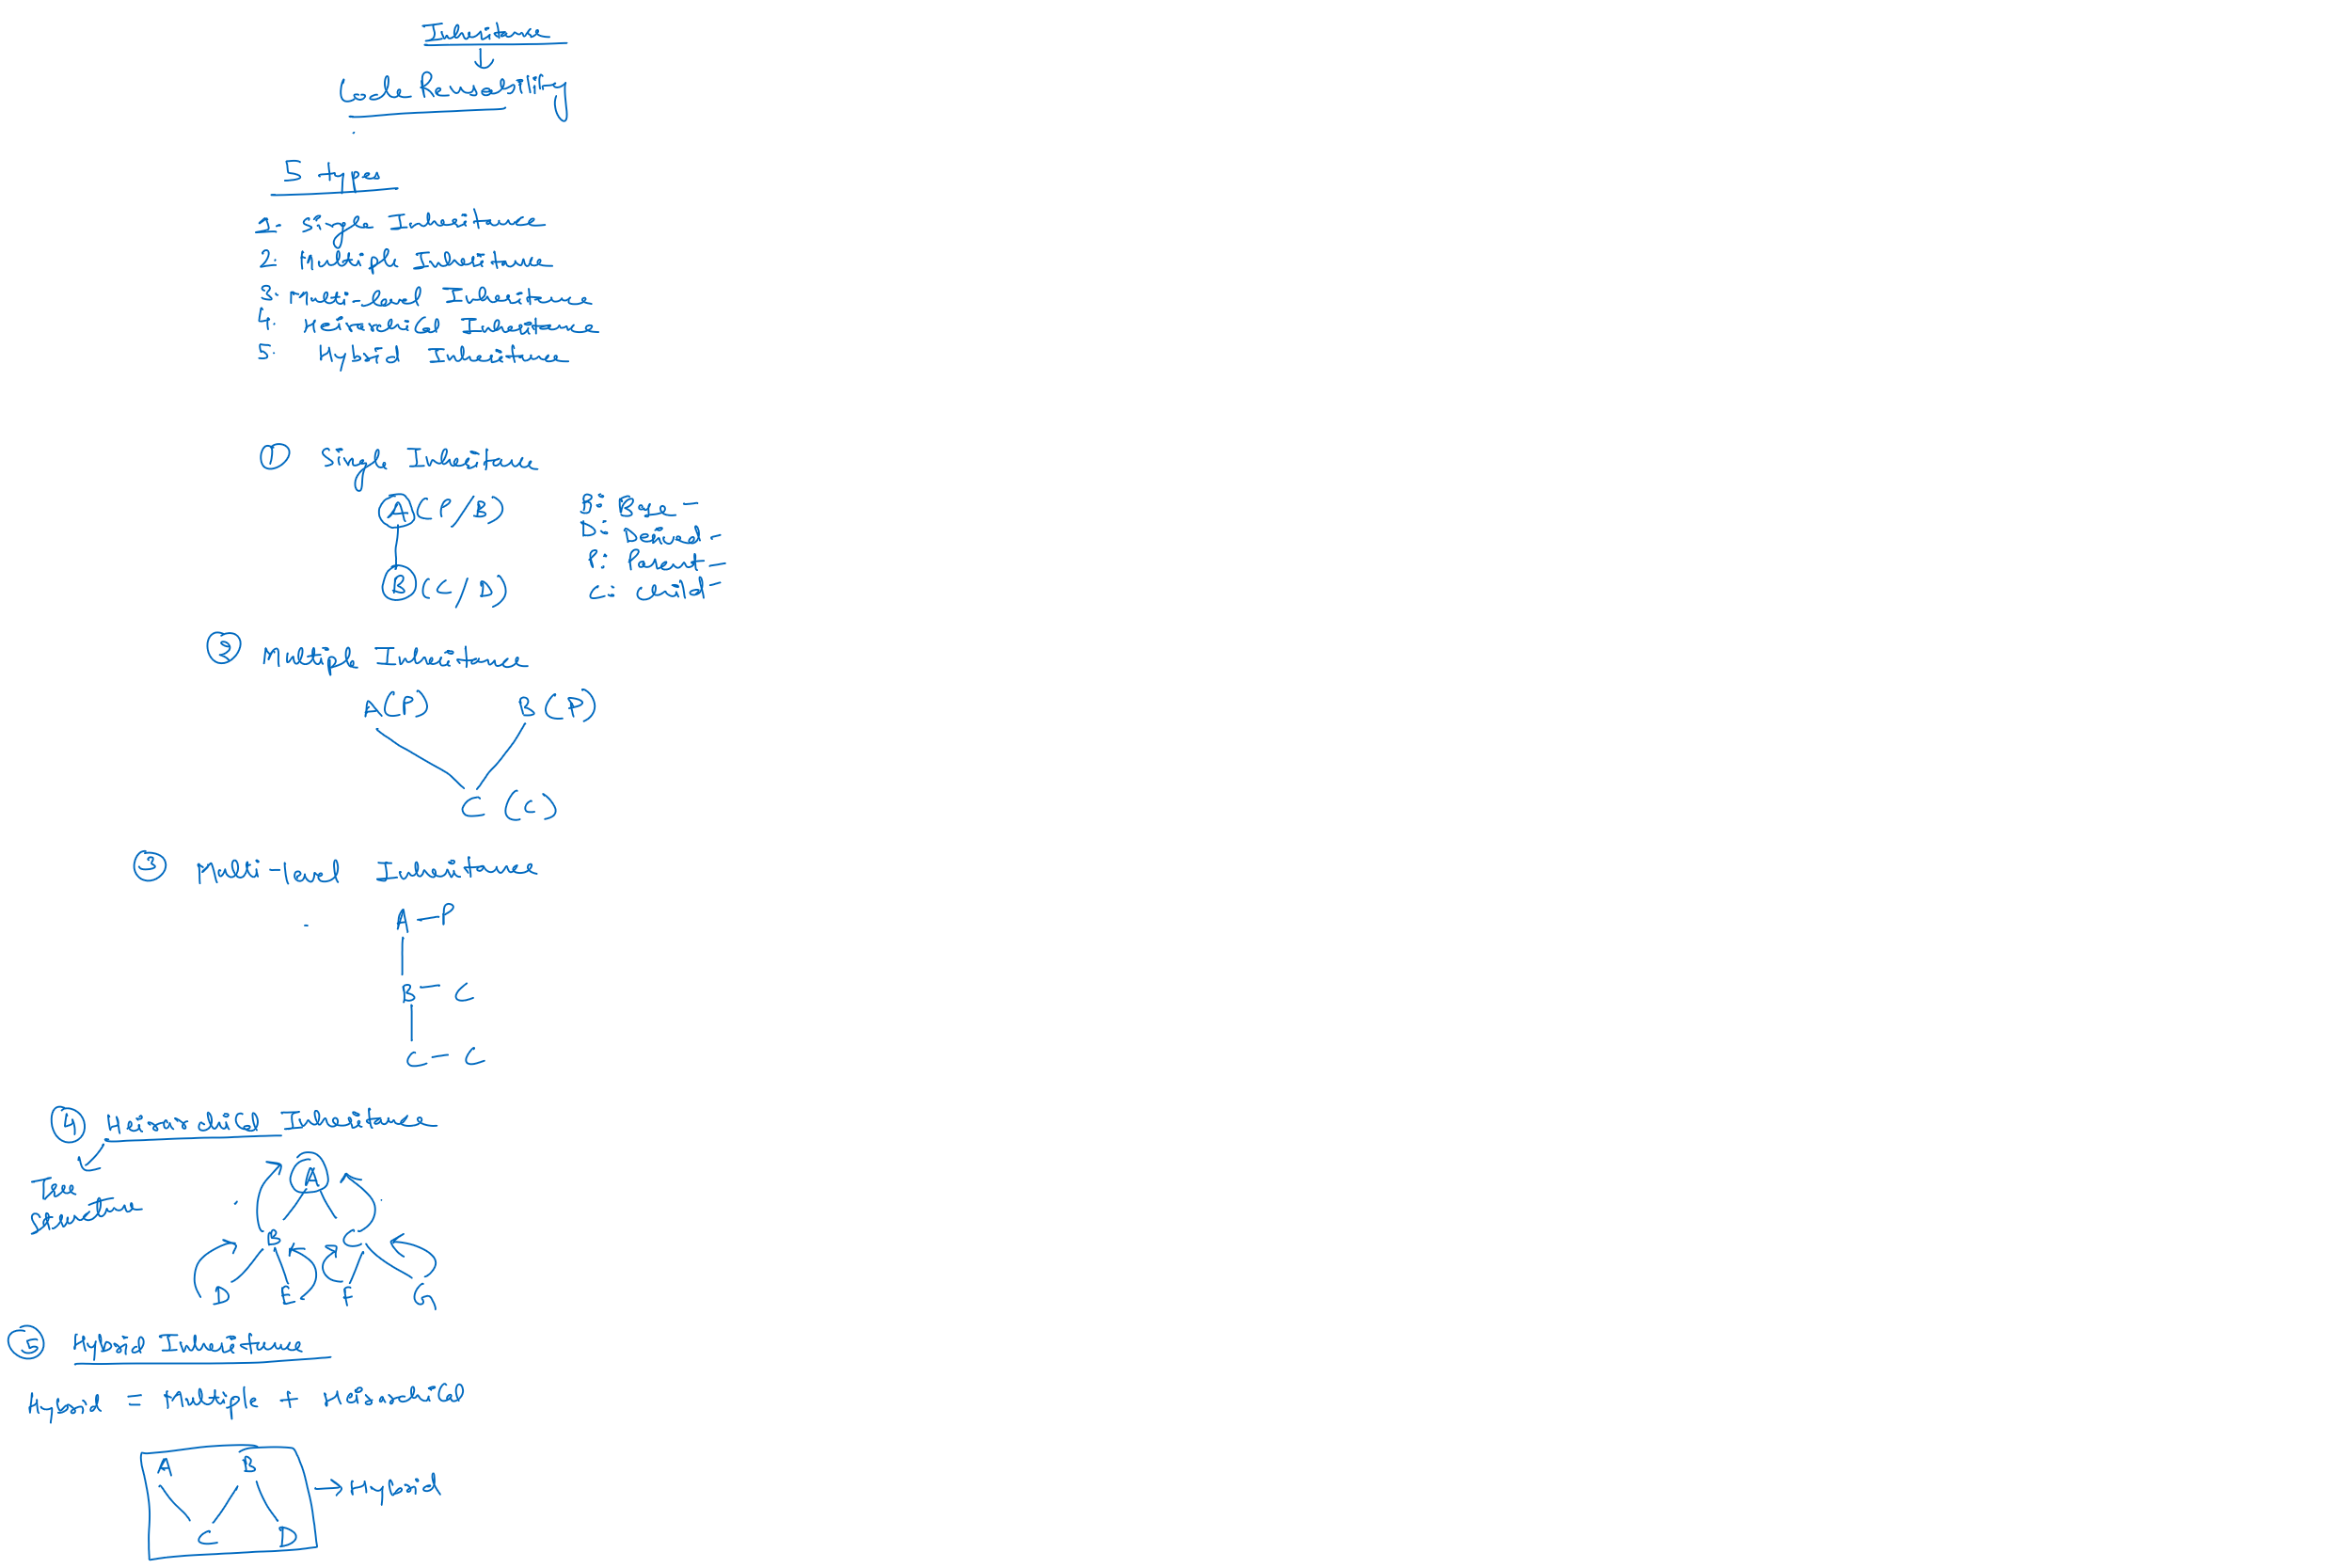 Inheritance
Code Reusability
5 types
1. Single Inheritance
2. Multiple Inheritance
3. Multi-level Inheritance
4. Heirarchical Inheritance
5. Hybrid Inheritance
① Single Inheritance
A (P/B)
B: Base -
D: Derived -
P: Parent -
C: Child -
B (C/D)
② Multiple Inheritance
A(P) B (P)
C (C)
③ Multi-level Inheritance
A - P
B - C
C - C
④ Heirarchical Inheritance
Tree
Structure
A
B C
D E F G
⑤ Hybrid Inheritance
Hybrid = Multiple + Heirarchical
A B
→ Hybrid
C D